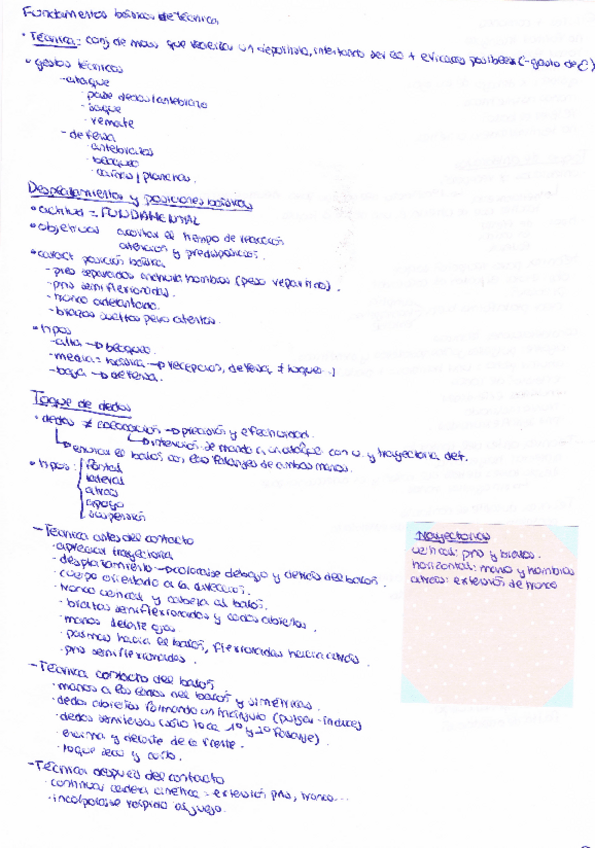 Fundamentos básicos de técnica
• Técnica: conj de movs que realiza un deportista, intentando ser lo + eficaces posibles (-gasto de E)
• gestos técnicos
- ataque
· pase dedos/antebrazo
· saque
· remate
- defensa
· antebrazos
· bloqueo
· caídas/planchas.
Desplazamientos y posiciones básicas
• actitud = FUNDAMENTAL
• objetivos acortar el tiempo de reacción
atención y predisposición.
• caract posición básica
- pies separados anchura hombros (peso repartido).
- pns semiflexionadas.
- tronco adelantado.
- brazos sueltos pero atentos.
• tipos
- alta → bloqueo.
- media = básica → recepción, defensa, ≠ toques
- baja → defensa.
Toque de dedos
• dedos ≠ colocación → precisión y efectividad.
→ intención de mandar a un atacante con v. y trayectoria det.
→ enviar el balón con las falanges de ambas manos.
• tipos: frontal
lateral
atrás
apoyo
suspensión
- Técnica antes del contacto
· apreciar trayectoria
· desplazamiento → colocarse debajo y detrás del balón.
· cuerpo orientado a la dirección.
· tronco vertical y cabeza al balón.
· brazos semiflexionados y codos abiertos.
· manos delante ojos
· palmas hacia el balón, flexionadas hacia atrás.
· pns semiflexionadas.
- Técnica contacto del balón
· manos a los lados del balón y simétricas.
· dedos abiertos formando un triángulo (pulgar-índices)
· dedos semitensos (sólo toca 1ª y 2ª falange).
· encima y delante de la frente.
· toque seco y corto.
- Técnica después del contacto
· continuar cadena cinética = extensión pns, tronco...
· incorporarse rápido al juego.
Trayectorias
vertical: pns y brazos.
horizontal: mano y hombros
atrás: extensión de tronco